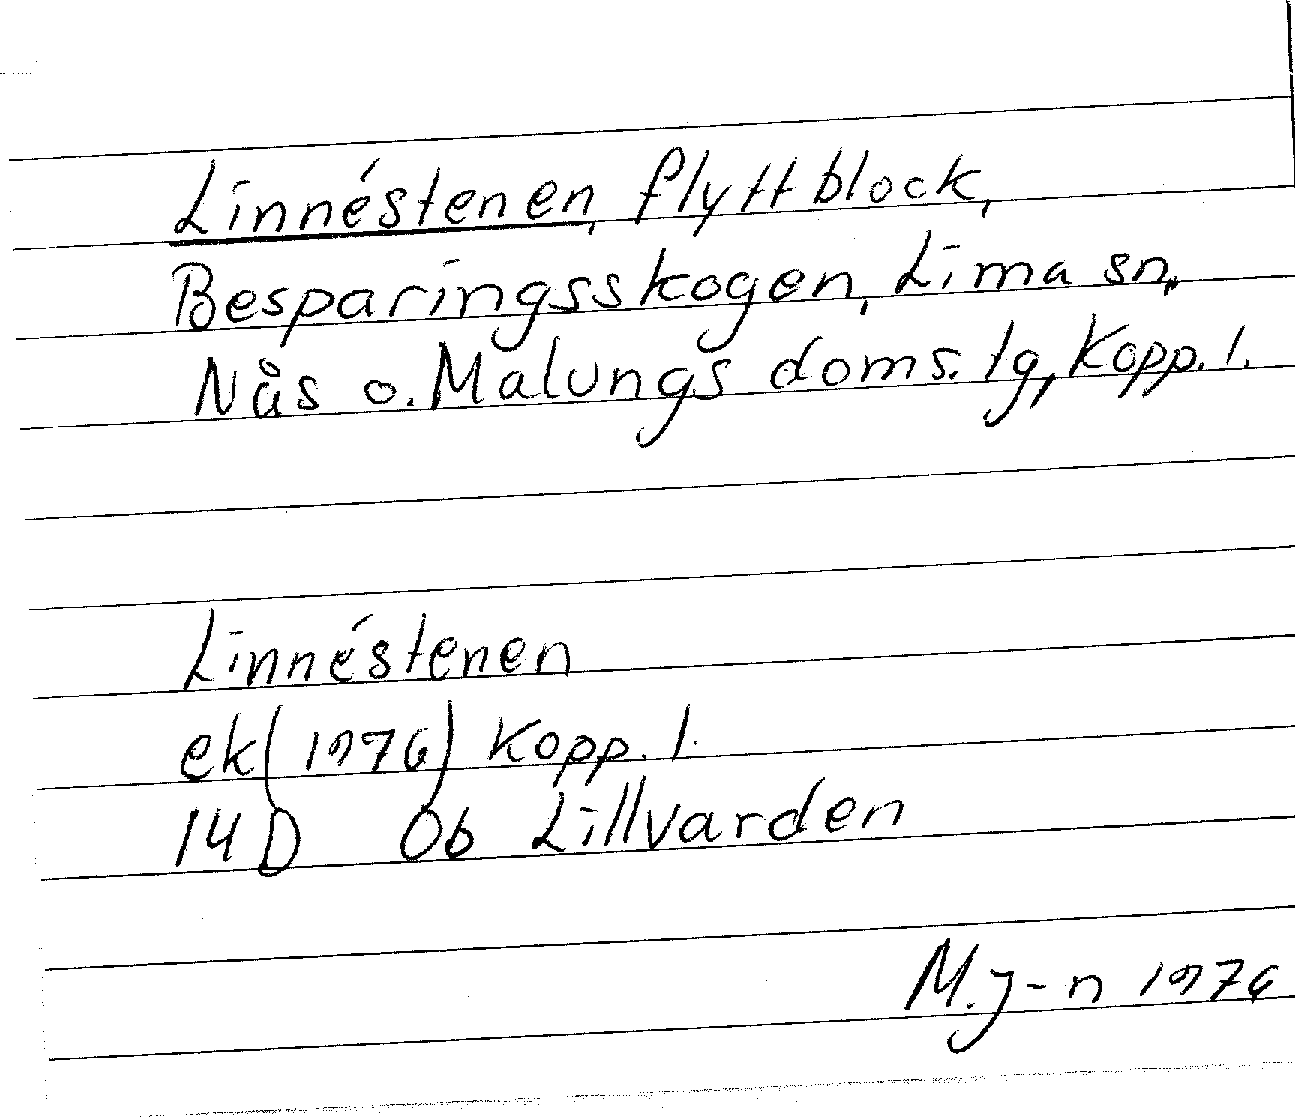 Linnéstenen, flyttblock,
Besparingsskogen, Lima sn,
Nås o. Malungs doms. lg, Kopp. l.
Linnéstenen
ek (1976) Kopp. l.
14D 0b Lillvarden
M. J-n 1976